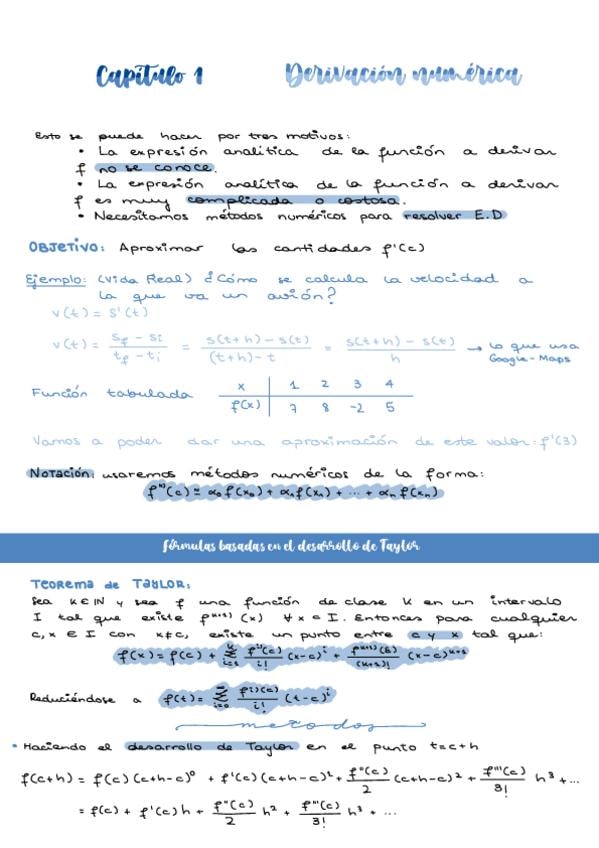 Capítulo 1 Derivación numérica
Esto se puede hacer por tres motivos:
• La expresión analítica de la función a derivar
f no se conoce.
• La expresión analítica de la función a derivar
f es muy complicada o costosa.
• Necesitamos métodos numéricos para resolver E.D
OBJETIVO: Aproximar las cantidades f'(c)
Ejemplo: (Vida Real) ¿Cómo se calcula la velocidad a
la que va un avión?
v(t) = s'(t)
v(t) = (sf - si)/(tf - ti) = (s(t+h) - s(t))/((t+h) - t) = (s(t+h) - s(t))/h → lo que usa
Google-Maps
Función tabulada
x 1 2 3 4
f(x) 7 8 -2 5
Vamos a poder dar una aproximación de este valor: f'(3)
NOTACIÓN: usaremos métodos numéricos de la forma:
f^(k)(c) ≈ α₀f(x₀) + α₁f(x₁) + ... + αₙf(xₙ)
fórmulas basadas en el desarrollo de Taylor
TEOREMA de TAYLOR:
Sea k ∈ ℕ y sea f una función de clase k en un intervalo
I tal que existe f^(k+1)(x) ∀x ∈ I. Entonces para cualquier
c, x ∈ I con x≠c, existe un punto entre c y x tal que:
Reduciéndose a f(t) = Σ_{i=0}^{∞} f^(i)(c)/i! (t-c)^i
metodos
• Haciendo el desarrollo de Taylor en el punto t=c+h
f(c+h) = f(c)(c+h-c)⁰ + f'(c)(c+h-c)¹ + f''(c)/2 (c+h-c)² + f'''(c)/3! h³ + ...
= f(c) + f'(c)h + f''(c)/2 h² + f'''(c)/3! h³ + ...